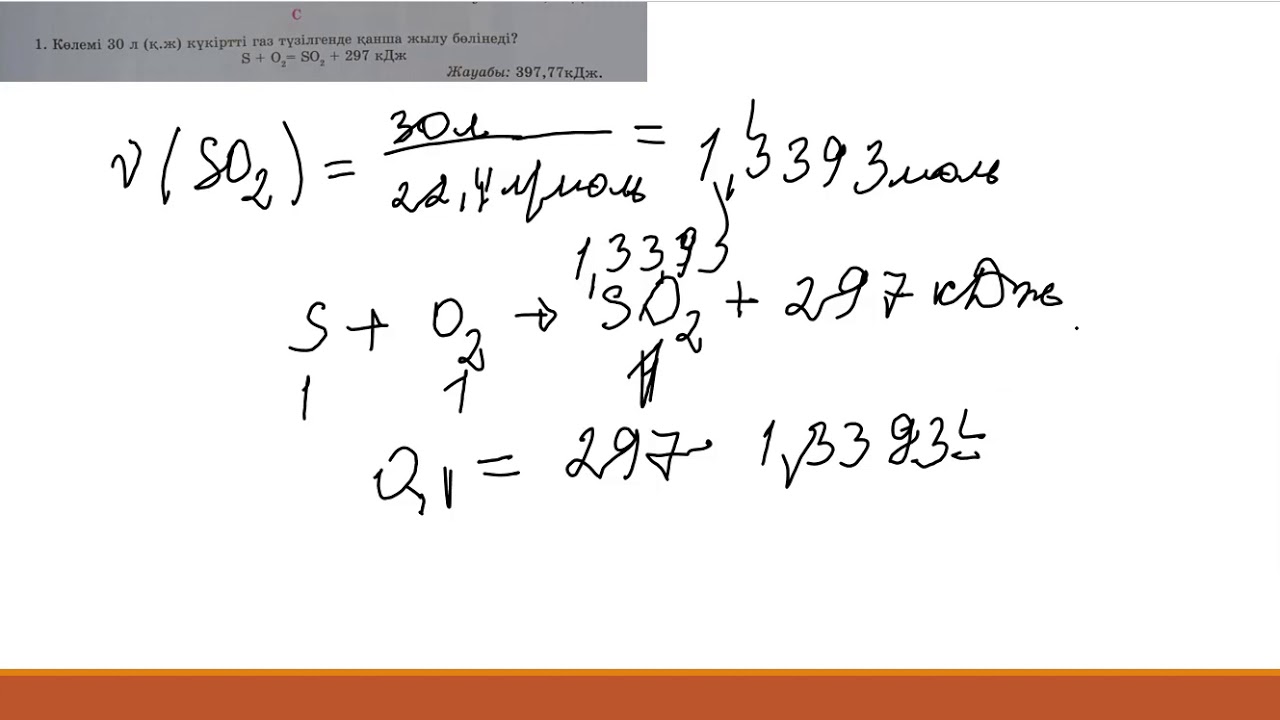 С
1. Көлемі 30 л (қ.ж) күкіртті газ түзілгенде қанша жылу бөлінеді?
S + O₂= SO₂ + 297 кДж
Жауабы: 397,77кДж.
ν(SO₂) = 30л / 22,4 л/моль = 1,3393моль
1,3393
S + O₂ → SO₂ + 297 кДж
1 1 1
Q₁ = 297 · 1,3393 =